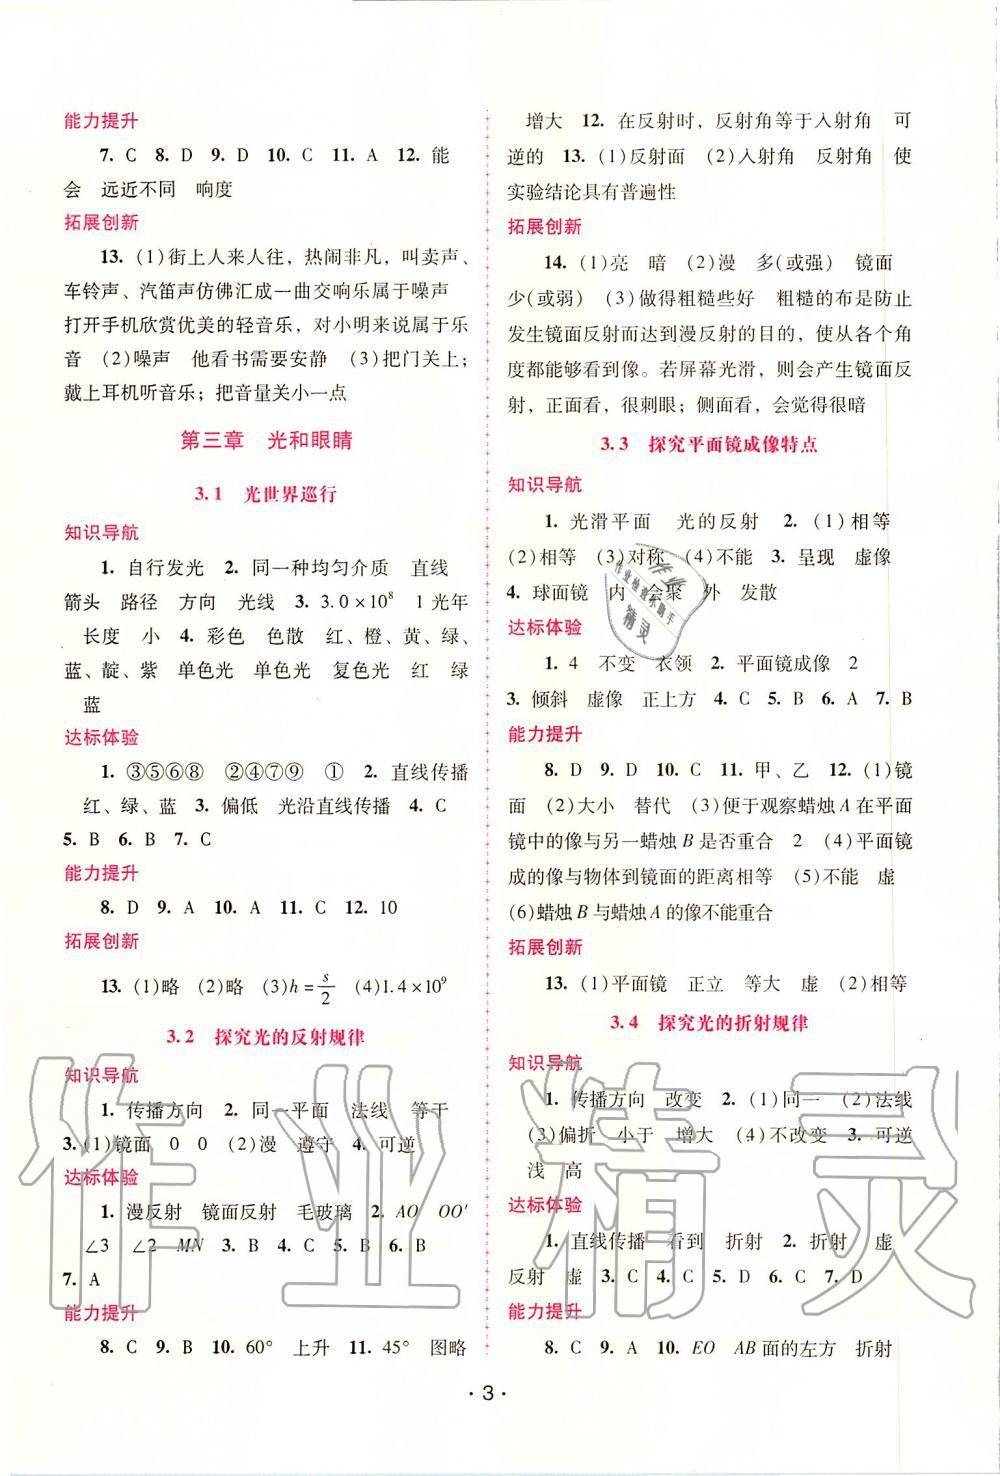 能力提升
7. C 8. D 9. D 10. C 11. A 12. 能
会 远近不同 响度
拓展创新
13. (1)街上人来人往，热闹非凡，叫卖声、
车铃声、汽笛声仿佛汇成一曲交响乐属于噪声
打开手机欣赏优美的轻音乐，对小明来说属于乐
音 (2)噪声 他看书需要安静 (3)把门关上；
戴上耳机听音乐；把音量关小一点
第三章 光和眼睛
3.1 光世界巡行
知识导航
1. 自行发光 2. 同一种均匀介质 直线
箭头 路径 方向 光线 3. 3.0×10⁸ 1光年
长度 小 4. 彩色 色散 红、橙、黄、绿、
蓝、靛、紫 单色光 单色光 复色光 红 绿
蓝
达标体验
1. ③⑤⑥⑧ ②④⑦⑨ ① 2. 直线传播
红、绿、蓝 3. 偏低 光沿直线传播 4. C
5. B 6. B 7. C
能力提升
8. D 9. A 10. A 11. C 12. 10
拓展创新
13. (1)略 (2)略 (3)h=s/2 (4)1.4×10⁹
3.2 探究光的反射规律
知识导航
1. 传播方向 2. 同一平面 法线 等于
3. (1)镜面 0 0 (2)漫 遵守 4. 可逆
达标体验
1. 漫反射 镜面反射 毛玻璃 2. AO OO′
∠3 ∠2 MN 3. B 4. C 5. B 6. B
7. A
能力提升
8. C 9. B 10. 60° 上升 11. 45° 图略
增大 12. 在反射时，反射角等于入射角 可
逆的 13. (1)反射面 (2)入射角 反射角 使
实验结论具有普遍性
拓展创新
14. (1)亮 暗 (2)漫 多(或强) 镜面
少(或弱) (3)做得粗糙些好 粗糙的布是防止
发生镜面反射而达到漫反射的目的，使从各个角
度都能够看到像。若屏幕光滑，则会产生镜面反
射，正面看，很刺眼；侧面看，会觉得很暗
3.3 探究平面镜成像特点
知识导航
1. 光滑平面 光的反射 2. (1)相等
(2)相等 (3)对称 (4)不能 3. 呈现 虚像
4. 球面镜 内 会聚 外 发散
达标体验
1. 4 不变 衣领 2. 平面镜成像 2
3. 倾斜 虚像 正上方 4. C 5. B 6. A 7. B
能力提升
8. D 9. D 10. C 11. 甲、乙 12. (1)镜
面 (2)大小 替代 (3)便于观察蜡烛A在平面
镜中的像与另一蜡烛B是否重合 2 (4)平面镜
成的像与物体到镜面的距离相等 (5)不能 虚
(6)蜡烛B与蜡烛A的像不能重合
拓展创新
13. (1)平面镜 正立 等大 虚 (2)相等
3.4 探究光的折射规律
知识导航
1. 传播方向 改变 2. (1)同一 (2)法线
(3)偏折 小于 增大 (4)不改变 3. 可逆
浅 高
达标体验
1. 直线传播 看到 折射 2. 折射 虚
反射 虚 3. C 4. C 5. D 6. C 7. D
能力提升
8. C 9. A 10. EO AB面的左方 折射
·3·
作业精灵
作业
作业检查小助手
精灵